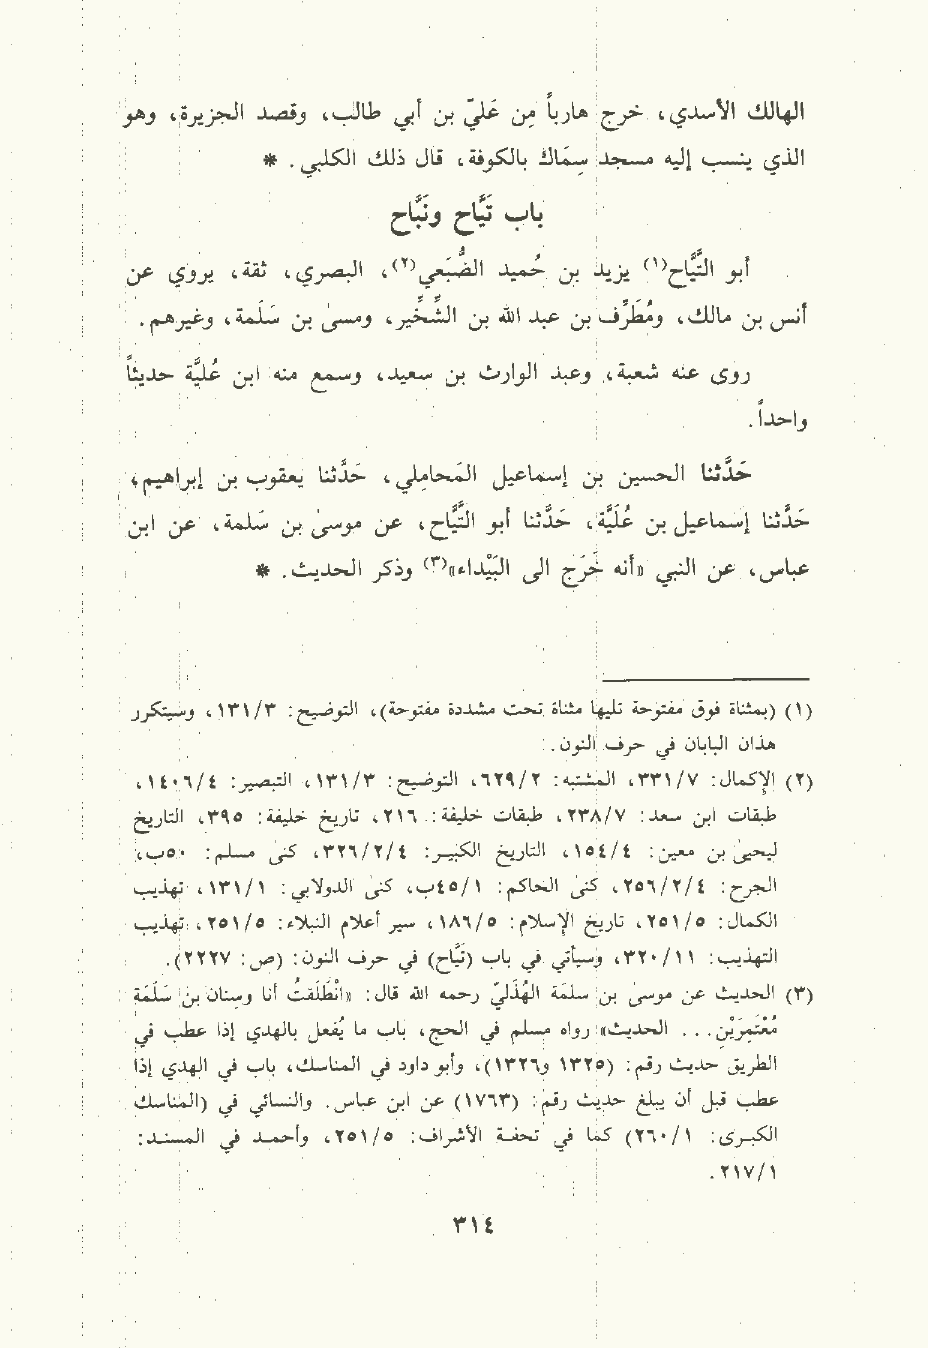 الهالك الأسدي، خرج هارباً مِن عَليّ بن أبي طالب، وقصد الجزيرة، وهو
الذي ينسب إليه مسجد سِمَاك بالكوفة، قال ذلك الكلبي. *
باب تَيَّاح ونَبَّاح
أبو التَّيَّاح(١) يزيد بن حُميد الضُّبَعي(٢)، البصري، ثقة، يروي عن
أنس بن مالك، ومُطَرِّف بن عبد الله بن الشِّخِّير، وموسىٰ بن سَلَمة، وغيرهم.
روى عنه شعبة، وعبد الوارث بن سعيد، وسمع منه ابن عُليَّة حديثاً
واحداً.
حَدَّثنا الحسين بن إسماعيل المَحامِلي، حَدَّثنا يعقوب بن إبراهيم،
حَدَّثنا إسماعيل بن عُلَيَّة، حَدَّثنا أبو التَّيَّاح، عن موسىٰ بن سَلمة، عن ابن
عباس، عن النبي «أنه خَرَج الى البَيْداء»(٣) وذكر الحديث. *
(١) (بمثناة فوق مفتوحة تليها مثناة تحت مشددة مفتوحة)، التوضيح: ١٣١/٣، وسيتكرر
هذان البابان في حرف النون.
(٢) الإكمال: ٣٣١/٧، المشتبه: ٦٢٩/٢، التوضيح: ١٣١/٣، التبصير: ١٤٠٦/٤،
طبقات ابن سعد: ٢٣٨/٧، طبقات خليفة: ٢١٦، تاريخ خليفة: ٣٩٥، التاريخ
ليحيىٰ بن معين: ١٥٤/٤، التاريخ الكبير: ٣٢٦/٢/٤، كنى مسلم: ٥٠ب،
الجرح: ٢٥٦/٢/٤، كنىٰ الحاكم: ٤٥/١ب، كنىٰ الدولابي: ١٣١/١، تهذيب
الكمال: ٢٥١/٥، تاريخ الإسلام: ١٨٦/٥، سير أعلام النبلاء: ٢٥١/٥، تهذيب
التهذيب: ٣٢٠/١١، وسيأتي في باب (تَيَّاح) في حرف النون: (ص: ٢٢٢٧).
(٣) الحديث عن موسىٰ بن سَلمَة الهُذَليّ رحمه الله قال: «انْطَلَقتُ أنا وسِنان بن سَلَمَة
مُعْتَمِرَيْن... الحديث» رواه مسلم في الحج، باب ما يُفعل بالهدي إذا عطب في
الطريق حديث رقم: (١٣٢٥ و١٣٢٦)، وأبو داود في المناسك، باب في الهدي إذا
عطب قبل أن يبلغ حديث رقم: (١٧٦٣) عن ابن عباس. والنسائي في (المناسك
الكبرى: ٢٦٠/١) كما في تحفة الأشراف: ٢٥١/٥، وأحمد في المسند:
٢١٧/١.
٣١٤